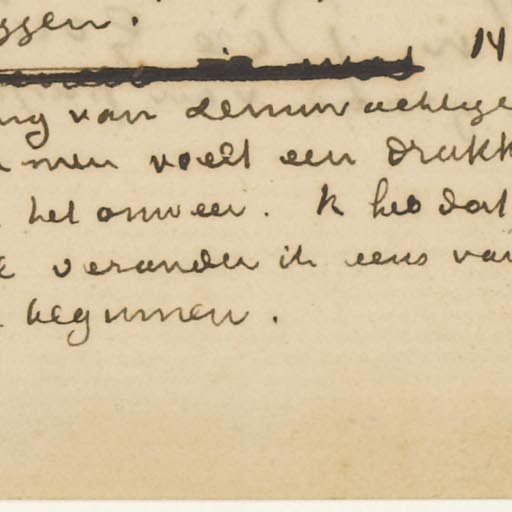 ggen.
14
ng van zenuwachtige
men voelt een drukk
het onweer. Ik heb dat
verander ik eens van
beginnen.